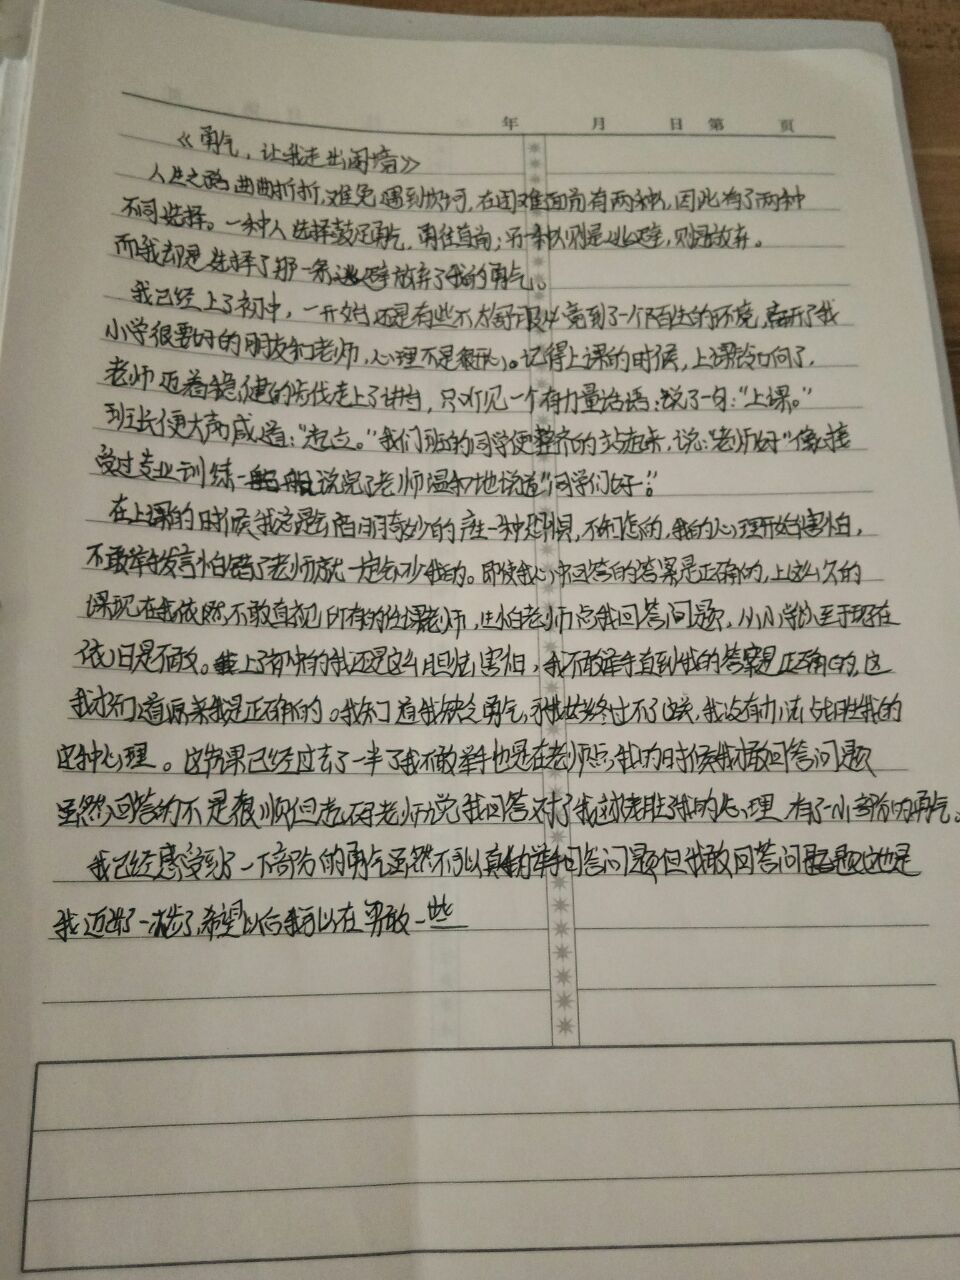 年 月 日 第 页
《勇气，让我走出困境》
人生之路曲曲折折，难免遇到坎坷，在困难面前有两种人，因此有了两种
不同选择。一种人选择鼓足勇气，勇往直前；另一种人则是逃避，则是放弃。
而我却是选择了那一条逃避放弃了我的勇气。
我已经上了初中，一开始还是有些不太舒服毕竟到了一个陌生的环境，离开了我
小学很要好的朋友和老师，心理不是很开心。记得上课的时候，上课铃响了，
老师迈着稳健的步伐走上了讲台，只听见一个有力量话语：说了一句："上课。"
班长便大声喊道："起立。"我们班的同学便整齐的站起来，说："老师好"像接
受过专业训练一般说完了老师温和地说道"同学们好"。
在上课的时候我总是莫名其妙的产生一种恐惧，不知怎的，我的心理开始害怕，
不敢举手发言怕错了老师就一定会
即使我心中回答的答案是正确的，上这么久的
课现在我依然不敢直视所有的任课老师，
怕老师点我回答问题，从小学以至于现在
依旧是不敢。上了初中的我还是这么胆怯害怕，我不敢举手直到我的答案是正确的，这
我才知道原来我是正确的。我知道我缺乏勇气，可我始终过不了这关，我没有办法战胜我的
这种心理。这学期已经过去了一半了我不敢举手也是在老师点我的时候我才敢回答问题
虽然回答的不是很顺但是一听老师说我回答对了我就战胜了我的心理，有了一小部分的勇气。
我已经感受到了一下部分的勇气虽然不可以真的举手回答问题但我敢回答问题这也是
我迈出了一大步了，希望以后我可以在勇敢一些